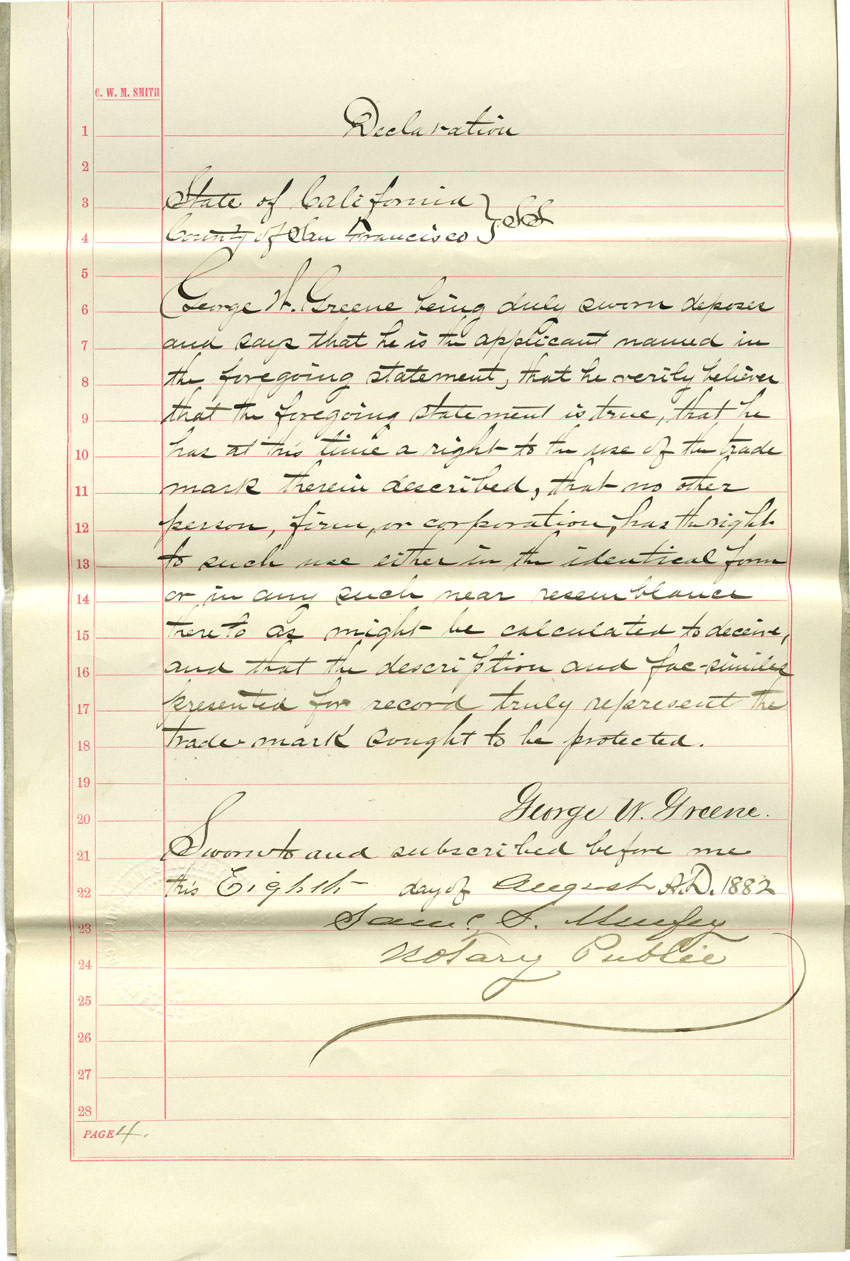 C. W. M. SMITH
1 Declaration
2
3 State of California } SS
4 County of San Francisco
5
6 George W. Greene being duly sworn deposes
7 and says that he is the applicant named in
8 the foregoing statement, that he verily believes
9 that the foregoing statement is true, that he
10 has at this time a right to the use of the trade
11 mark therein described, that no other
12 person, firm, or corporation, has the right
13 to such use either in the identical form
14 or in any such near resemblance
15 thereto as might be calculated to deceive,
16 and that the description and fac-similes
17 presented for record truly represent the
18 trade-mark sought to be protected.
19
20 George W. Greene.
21 Sworn to and subscribed before me
22 this Eighth day of August A.D. 1882
23 Saml S.
24 Notary Public
25
26
27
28
PAGE 4.